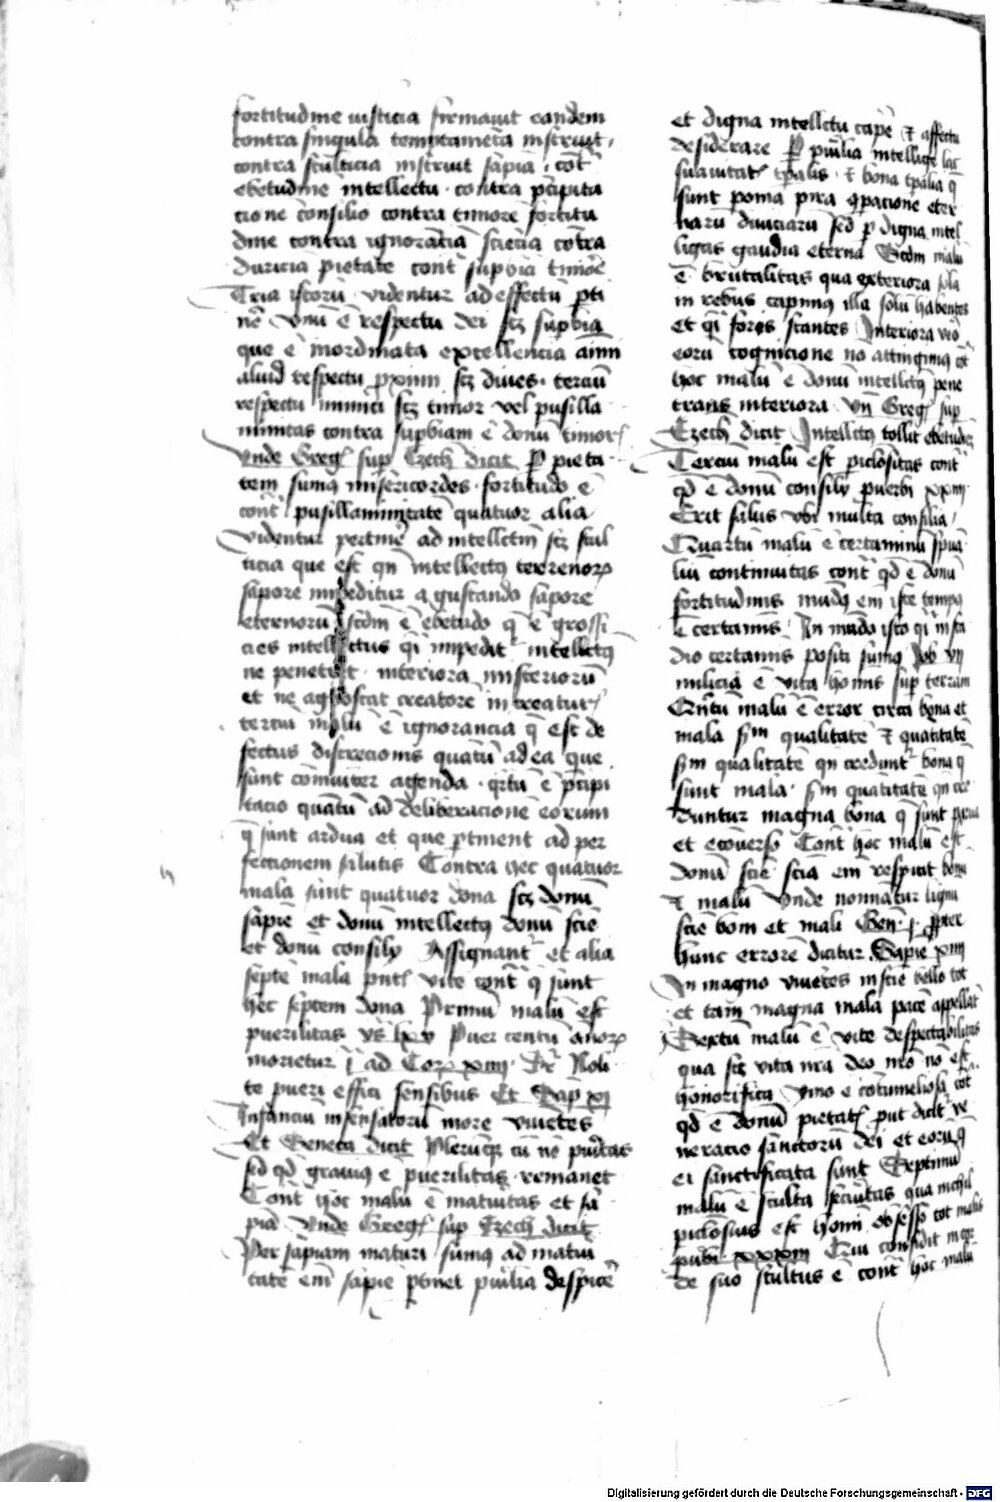 fortitudine iusticia firmauit eandem
contra singula temptamēta instruit,
contra stulticia instruit sapīa · cōt̄
ebetudine intellectu · contra p̄cipita
cione consilio contra timore fortitu
dine contra ignorācia sciēcia cōtra
duricia pietate cont̄ supbia timōe
Tria istorū videntur ad effectū pti
nē vnū ē respectu dei scz supbia
que ē inordinata excellencia animi
aliud respectu pximi scz
respectu inimici scz timor vel pusilla
nimitas contra supbiam ē donū timor
Vnde Greg sup Ezech dicit p pieta
tem sumꝯ misericordes · fortitudo ē
cont̄ pusillanimitatē quatuor alia
videntur ptine ad intellectū scz stul
ticia que est qn̄ intellectꝯ terrenoꝝ
sapore impeditur a gustando sapore
eternorū scdm̄ ē ebetudo q̄ ē grossi
cies intellectus q̄ impedit intellectū
ne penetret interiora misteriorū
et ne agnoscat creatorē in creatur
terciū malū ē ignorancia q̄ est de
fectus discrecionis quātū ad ea que
sunt cōmuniter agenda · qrtū ē p̄cipi
tacio quātū ad deliberacionē eorum
q̄ sunt ardua et que ptinent ad per
fectionem salutis Contra hec quatuor
mala sunt quatuor dona scz donū
sapīe et donū intellectꝯ donū scīe
et donū consilij Assignant̄ et alia
septē mala pnt vite cont̄ q̄ sunt
hec septem dona Primū malū est
puerilitas ys lxv Puer centū ānoꝝ
morietur j ad Cor xiiij Fr̄ Noli
te pueri effici sensibus Et Sap xij
Infanciū insensatorū more viuētes
Et Seneca dicit Plerūqꝫ cū nō
sed qd̄ grauiꝯ ē puerilitas remanet
Cont̄ hoc malū ē maturitas et sa
pīa Vnde Greg sup Ezech dicit
Per sapiam maturi sumꝯ ad matui
tatē em̄ sapīe ptinet puilia despicē
et digna intellectu capē & affectu
desiderare P puilia intellige
suauitat̄ tpalis · & bona tpalia q̄
sunt poma pira 9pacione eter
narū diuiciarū sed p digna intel
ligas gaudia eterna Scdm malū
ē brutalitas qua exteriora sola
in rebus capimꝯ illa solū habentes
et q̄ foris stantes Interiora vero
eorū cognicione nō attingimꝯ cōt̄
hoc malū ē donū intellectꝯ pene
trans interiora Vn̄ Greg sup
Ezech dicit Intellectꝯ tollit ebetudinē
Terciū malū est piclositas cont̄
qd̄ ē donū consilij puerbi xxiiij
Erit salus vbi multa consilia /
Quartū malū ē certaminū spua
liū continuitas cont̄ qd̄ ē donū
fortitudinis mūdꝯ em̄ iste tempꝯ
ē certamis · In mūdo isto q̄ in sta
dio certamis positi sumꝯ Job vij
milicia ē vita hoīnis sup terram
Qrntū malū ē error circa bona et
mala s̄m qualitatē & quātitatē
s̄m qualitatē qn̄ credunt̄ bona q̄
sunt mala · s̄m quātitatē qn̄ cre
duntur magna bona q̄ sunt parua
et ecōuerso Cont̄ hoc malū est
donū scīe scīa em̄ respicit bonū
& malū Vnde nomīatur lignū
scīe boni et mali Gen · j · ppter
hunc errorē dicitur Sapīe xiiij
In magno viuētes inscīe bello tot
et tam magna mala pacē appellāt
Sextū malū ē vite despectabilitas
qua scz vita nr̄a deo nr̄o nō est
honorifica ymo ē cōtumeliosa cōt̄
qd̄ ē donū pietat̄ put dicit̄ ve
neracio sanctorū dei et eorū q̄
ei sanctificata sunt Septimū
malū ē stulta secūritas qua nichil
piclosius est homī obsesso tot malis
pūbi xxxiij Qui confidit in cor
de suo stultus ē cont̄ hoc malū
Digitalisierung gefördert durch die Deutsche Forschungsgemeinschaft - DFG